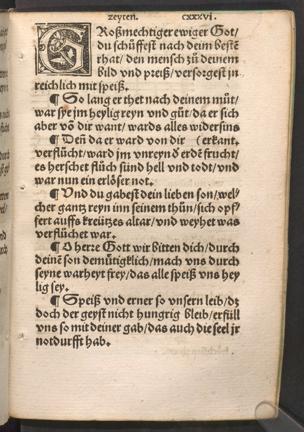 zeyten. cxxxvi.
GRoßmechtiger ewiger Got/
du schüffest nach deim bestē
rhat/ den mensch zů deinem
bild vnd preiß/ versorgest jn
reichlich mit speiß.
¶ So lang er thet nach deinem můt/
war sye jm heylig reyn vnd gůt/da er sich
aber vō dir want/wards alles widersins
¶ Deñ da er ward von dir (erkant.
verflücht/ward jm vnreyn ď erdē frucht/
es herschet flůch sünd hell vnd todt/vnd
war nun ein erlöser not.
¶ Vnd du gabest dein lieben son/wel/
cher gantz reyn inn seinem thůn/sich opf/
fert auffs kreützes altar/vnd weyhet was
verflůchet war.
¶ O herre Gott wir bitten dich/durch
deinē son demůtigklich/mach vns durch
seyne warheyt frey/das alle speiß vns hey
lig sey.
¶ Speiß vnd erner so vnsern leib/dz
doch der geyst nicht hungrig bleib/erfüll
vns so mit deiner gab/das auch die seel jr
notdurfft hab.